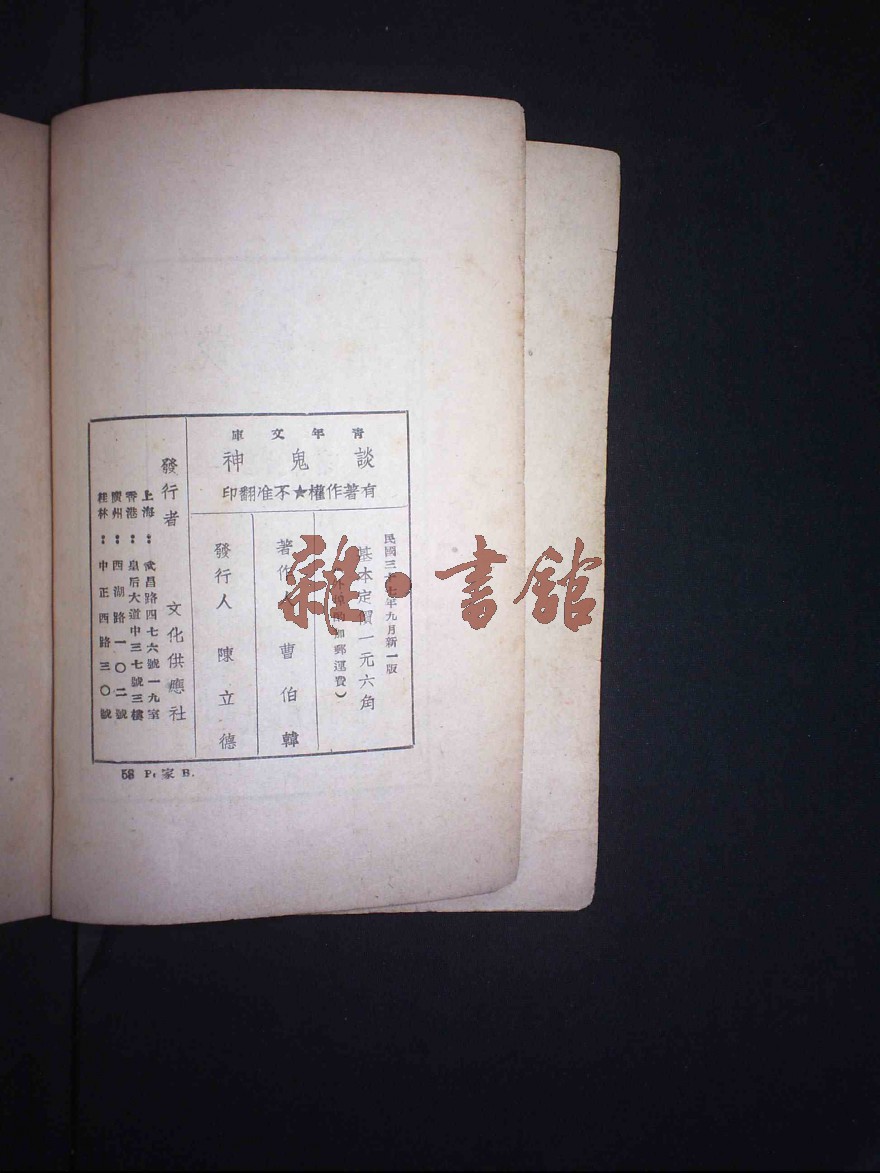 青年文庫
談鬼神
有著作權★不准翻印
民國三十七年九月新一版
基本定價一元六角
加郵運費）
著作人 曹伯韓
發行人 陳立德
發行者 文化供應社
上海：武昌路四七六號一九室
香港：皇后大道中三七號三樓
廣州：西湖路一〇二號
桂林：中正西路三〇號
58 P. 家 B.
雜·書館